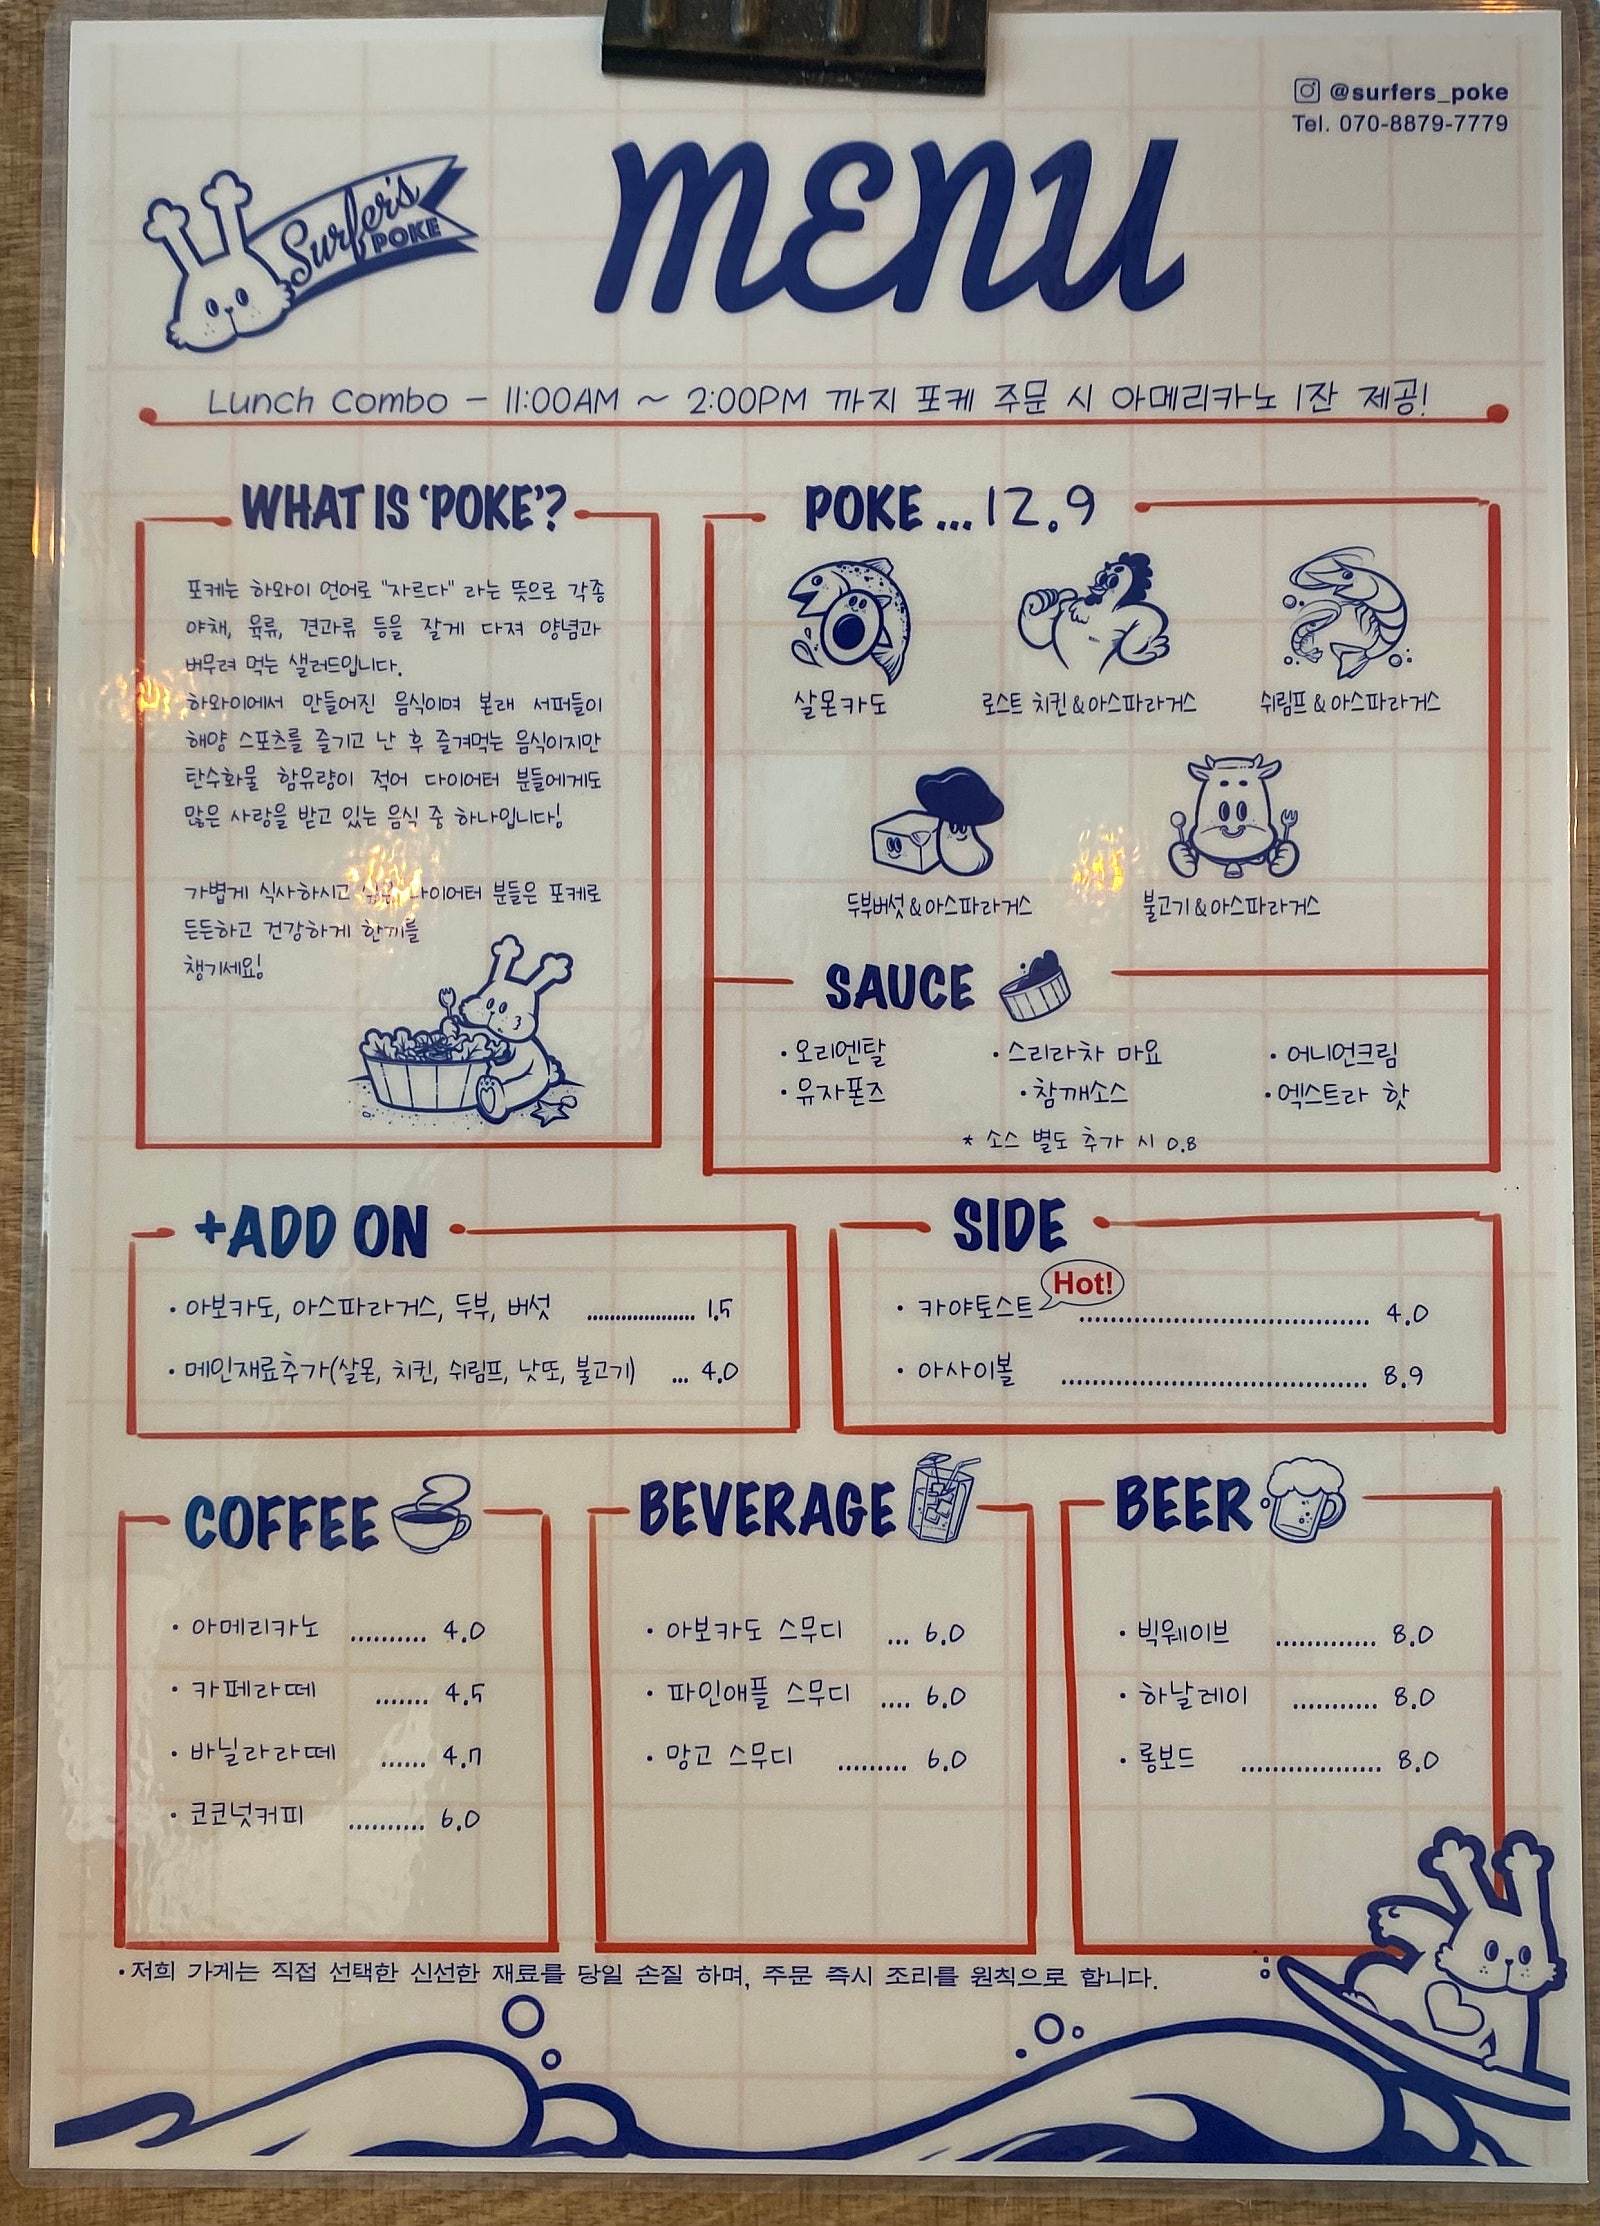 @surfers_poke
Tel. 070-8879-7779
Surfer's
POKE
MENU
Lunch Combo - 11:00AM ~ 2:00PM 까지 포케 주문 시 아메리카노 1잔 제공!
WHAT IS 'POKE'?
포케는 하와이 언어로 "자르다" 라는 뜻으로 각종
야채, 육류, 견과류 등을 잘게 다져 양념과
버무려 먹는 샐러드입니다.
하와이에서 만들어진 음식이며 본래 서퍼들이
해양 스포츠를 즐기고 난 후 즐겨먹는 음식이지만
탄수화물 함유량이 적어 다이어터 분들에게도
많은 사랑을 받고 있는 음식 중 하나입니다!
가볍게 식사하시고 싶은 다이어터 분들은 포케로
든든하고 건강하게 한끼를
챙기세요!
POKE ... 12.9
살몬카도
로스트 치킨&아스파라거스
쉬림프 &아스파라거스
두부버섯&아스파라거스
불고기&아스파라거스
SAUCE
· 오리엔탈
· 스리라차 마요
· 어니언크림
· 유자폰즈
· 참깨소스
· 엑스트라 핫
* 소스 별도 추가 시 0.8
+ADD ON
· 아보카도, 아스파라거스, 두부, 버섯 .................... 1.5
· 메인재료추가(살몬, 치킨, 쉬림프, 낫또, 불고기) ... 4.0
SIDE
Hot!
· 카야토스트 ........................................ 4.0
· 아사이볼 ........................................... 8.9
COFFEE
· 아메리카노 .......... 4.0
· 카페라떼 ....... 4.5
· 바닐라라떼 ...... 4.7
· 코코넛커피 .......... 6.0
BEVERAGE
· 아보카도 스무디 ... 6.0
· 파인애플 스무디 .... 6.0
· 망고 스무디 ......... 6.0
BEER
· 빅웨이브 ............. 8.0
· 하날레이 ........... 8.0
· 롱보드 .................. 8.0
· 저희 가게는 직접 선택한 신선한 재료를 당일 손질 하며, 주문 즉시 조리를 원칙으로 합니다.